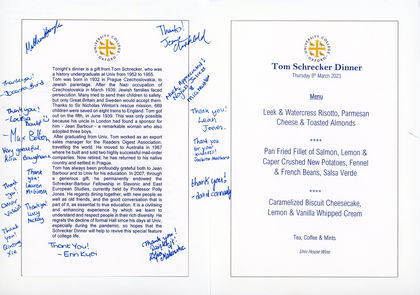 Matthew
Thanks!
UNIVERSITY COLLEGE
OXFORD
Tonight's dinner is a gift from Tom Schrecker, who was
a history undergraduate at Univ from 1952 to 1955.
Tom was born in 1932 in Prague Czechoslovakia, to
Jewish parentage. After the Nazi occupation of
Czechoslovakia in March 1939, Jewish families faced
persecution. Many tried to send their children to safety,
but only Great Britain and Sweden would accept them.
Thanks to Sir Nicholas Winton's rescue mission, 669
children were saved on eight trains to England. Tom got
out on the fifth, in June 1939. This was only possible
because his uncle in London had found a sponsor for
him - Jean Barbour - a remarkable woman who also
adopted three boys.
After graduating from Univ, Tom worked as an export
sales manager for the Readers Digest Association,
travelling the world. He moved to Australia in 1967
where he built and sold two highly successful mail-order
companies. Now retired, he has returned to his native
country and settled in Prague.
Tom has always been profoundly grateful both to Jean
Barbour and to Univ for his education. In 2007, through
a generous gift, he permanently endowed the
Schrecker-Barbour Fellowship in Slavonic and East
European Studies, currently held by Professor Polly
Jones. He regards dining together, with new people as
well as old friends, and the good conversation that is
part of it, as essential to true education. It is a civilising
and enhancing experience by which we learn to
understand and respect people in their rich diversity. He
regrets the decline of formal Hall since his days at Univ,
especially during the pandemic, so hopes that the
Schrecker Dinner will help to revive this special feature
of college life.
Thank you!
Thank you!
Max
Very grateful
Thank you!
Lucy
Thank you!
Thank You!
- Erin
Thank you!
Thank you!
Leah
Thank you
for your
kindness!
thank you!
david
UNIVERSITY COLLEGE
OXFORD
Tom Schrecker Dinner
Thursday 9th March 2023
Menu
Leek & Watercress Risotto, Parmesan
Cheese & Toasted Almonds
****
Pan Fried Fillet of Salmon, Lemon &
Caper Crushed New Potatoes, Fennel
& French Beans, Salsa Verde
****
Caramelized Biscuit Cheesecake,
Lemon & Vanilla Whipped Cream
Tea, Coffee & Mints
Univ House Wine